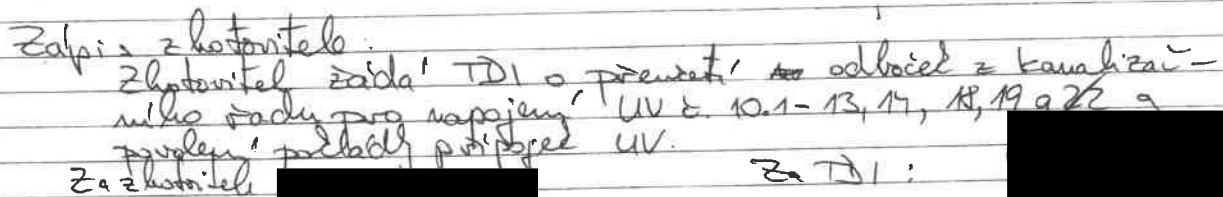 Zápis zhotovitele:
Zhotovitel žádá TDI o převzetí odboček z kanalizač-
ního řadu pro napojení UV č. 10.1-13, 14, 18, 19 a 22 a
povolení pokládky přípojek UV.
Za zhotovitele Za TDI: